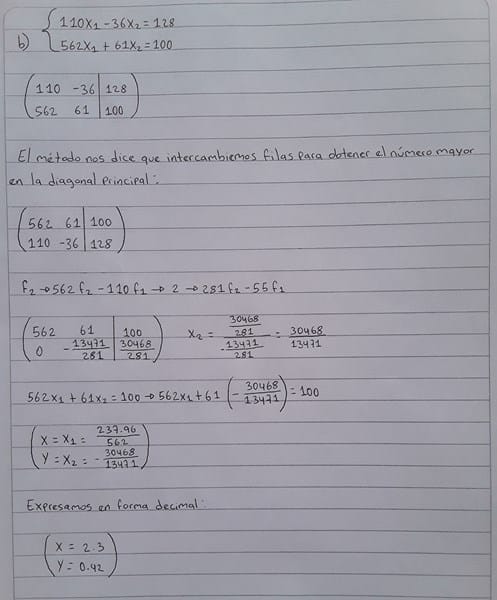 b) { 110x₁ - 36x₂ = 128
562x₁ + 61x₂ = 100
( 110 -36 | 128
562 61 | 100 )
El método nos dice que intercambiemos filas para obtener el número mayor
en la diagonal Principal:
( 562 61 | 100
110 -36 | 128 )
f₂ → 562f₂ - 110f₁ → 2 → 281f₂ - 55f₁
( 562 61 | 100
0 -13471/281 | 30468/281 ) x₂ = (30468/281)/(-13471/281) = 30468/13471
562x₁ + 61x₂ = 100 → 562x₁ + 61 (-30468/13471) = 100
( X = x₁ = 237.96/562
Y = x₂ = -30468/13471 )
Expresamos en forma decimal:
( X = 2.3
Y = 0.42 )